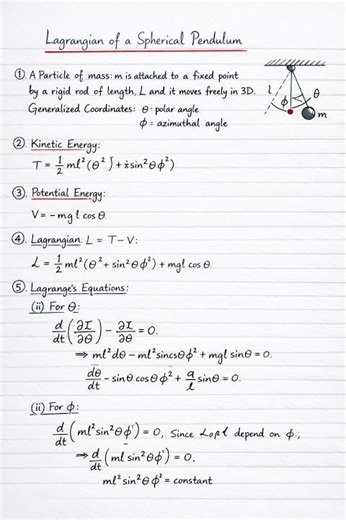 Lagrangian of a Spherical Pendulum
① A Particle of mass: m is attached to a fixed point
by a rigid rod of length, L and it moves freely in 3D.
Generalized Coordinates: θ · polar angle
ϕ = azimuthal angle
l ϕ θ m
② Kinetic Energy:
T = 1/2 ml²(θ²) + ż sin²θϕ²)
③ Potential Energy:
V = − mg l cos θ.
④ Lagrangian: L = T − V:
ℒ = 1/2 ml²(θ² + sin²θϕ²) + mgl cos θ.
⑤ Lagrange's Equations:
(ii) For θ:
d/dt (∂I/∂θ) − ∂I/∂θ = 0.
⇒ ml²dθ − ml²sincsθϕ² + mgl sinθ = 0.
dθ/dt − sinθ cosθ ϕ² + g/l sinθ = 0.
(ii) For ϕ:
d/dt (ml²sin²θϕ²) = 0, Since depend on ϕ;
⇒ d/dt (ml sin²θϕ²) = 0.
ml² sin²θϕ² = constant